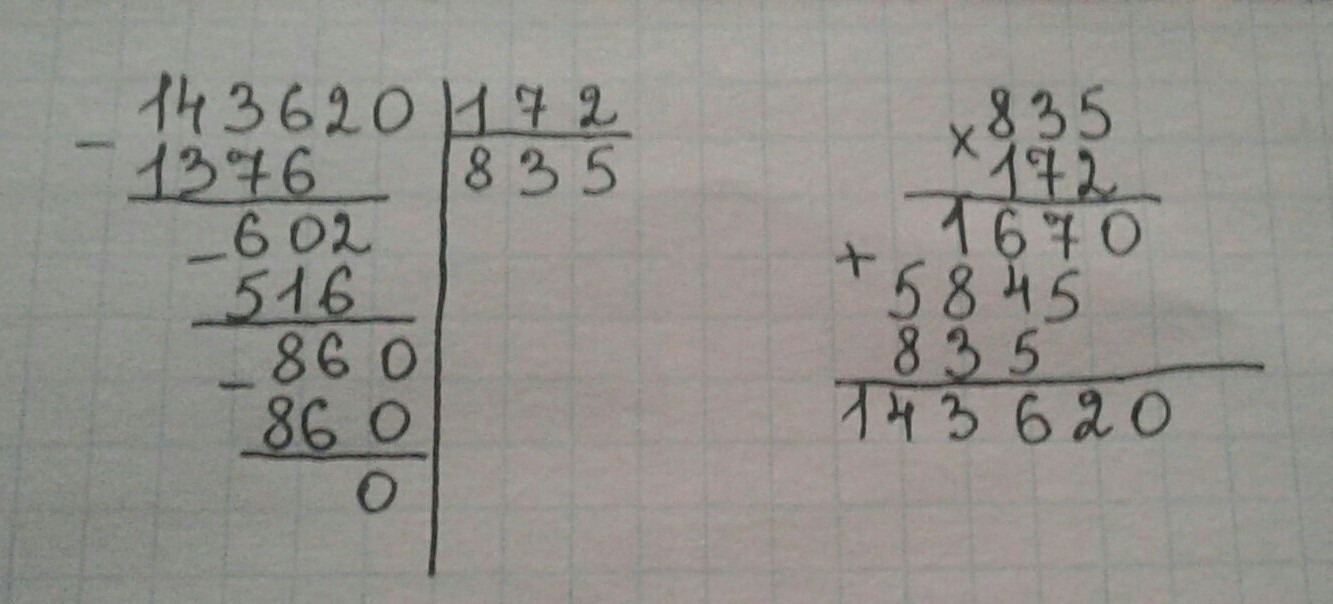 143620 172
- 1376 835
- 602
516
- 860
860
0
× 835
172
1670
+ 5845
835
143620